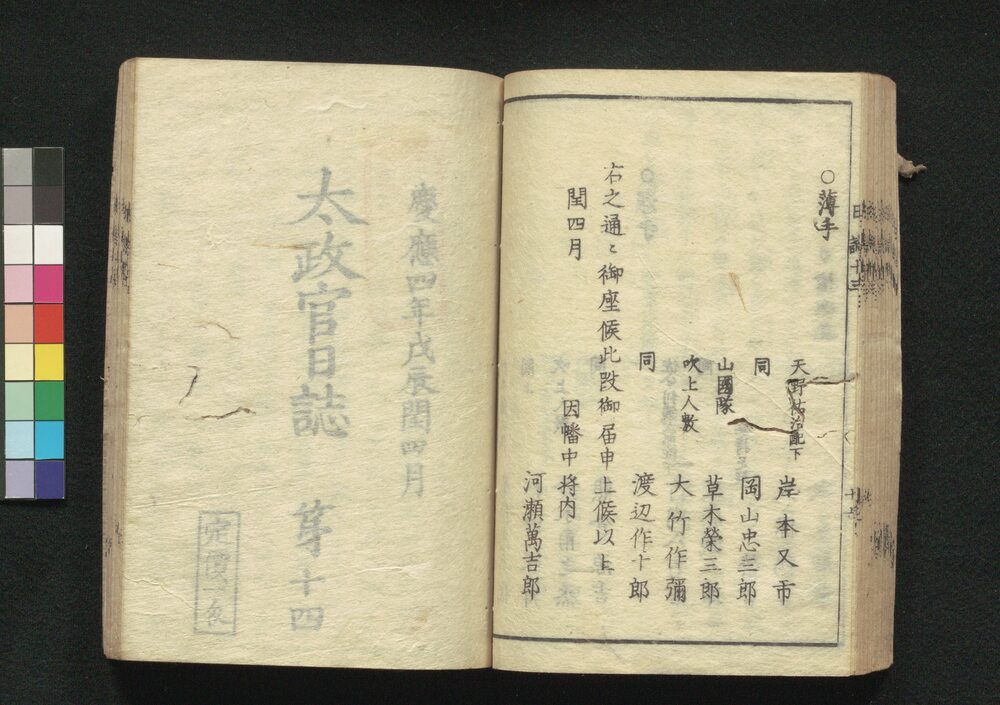 ○薄手
天野祐治配下 岸本又市
同 岡山忠三郎
山國隊 草木榮三郎
吹上人數 大竹作彌
同 渡辺作十郎
右之通ニ御座候此段御届申上候以上
閏四月 因幡中将内
河瀬萬吉郎
慶應四年戊辰閏四月
太政官日誌 第十四